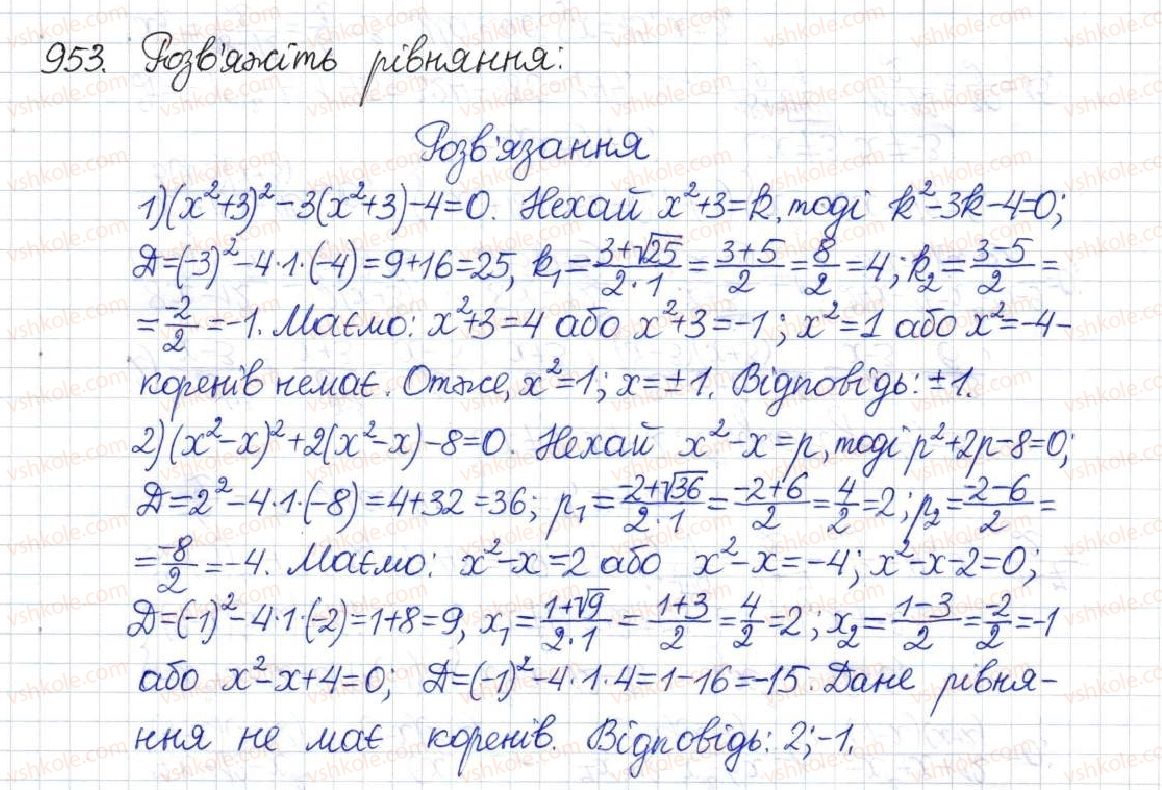 953. Розв'яжіть рівняння:
Розв'язання
1) (x²+3)²-3(x²+3)-4=0. Нехай x²+3=k, тоді k²-3k-4=0;
Д=(-3)²-4·1·(-4)=9+16=25, k₁=(3+√25)/(2·1)=(3+5)/2=8/2=4; k₂=(3-5)/2=
=-2/2=-1. Маємо: x²+3=4 або x²+3=-1; x²=1 або x²=-4-
коренів немає. Отже, x²=1; x=±1. Відповідь: ±1.
2) (x²-x)²+2(x²-x)-8=0. Нехай x²-x=p, тоді p²+2p-8=0;
Д=2²-4·1·(-8)=4+32=36; p₁=(-2+√36)/(2·1)=(-2+6)/2=4/2=2; p₂=(-2-6)/2=
=-8/2=-4. Маємо: x²-x=2 або x²-x=-4; x²-x-2=0;
Д=(-1)²-4·1·(-2)=1+8=9, x₁=(1+√9)/(2·1)=(1+3)/2=4/2=2; x₂=(1-3)/2=-2/2=-1
або x²-x+4=0; Д=(-1)²-4·1·4=1-16=-15. Дане рівня-
ння не має коренів. Відповідь: 2; -1.
vshkole.com